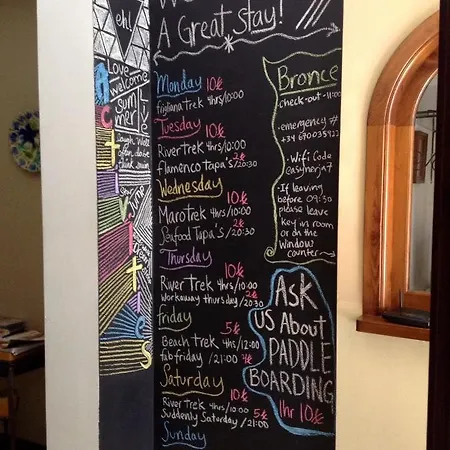 ehl
Love
welcome
Summer
Live
Laugh
Activities
A Great Stay!
Monday 10€
frigliana trek 4hrs/10:00
Tuesday 10€
River trek 4hrs/10:00
2€
flamenco tapa's/20:30
Wednesday
10€
Maro Trek 4hrs/10:00
2€
Seafood Tapa's/20:30
Thursday
10€
River Trek 4hrs/10:00
Workaway thursday/20:30
2€
friday
5€
Beach trek 4hs/12:00
fab friday/21:00 4€
Saturday
10€
River Trek 4hrs/10:00
5€
Suddenly Saturday/21:00
Sunday
Bronce
check-out-11:00
·emergency #
+34 670035422
·Wifi Code
@asynerja7
·If leaving
before 09:30
please leave
key in room
or on the
Window
counter
Ask
us About
PADDLE
BOARDING
1hr 10€